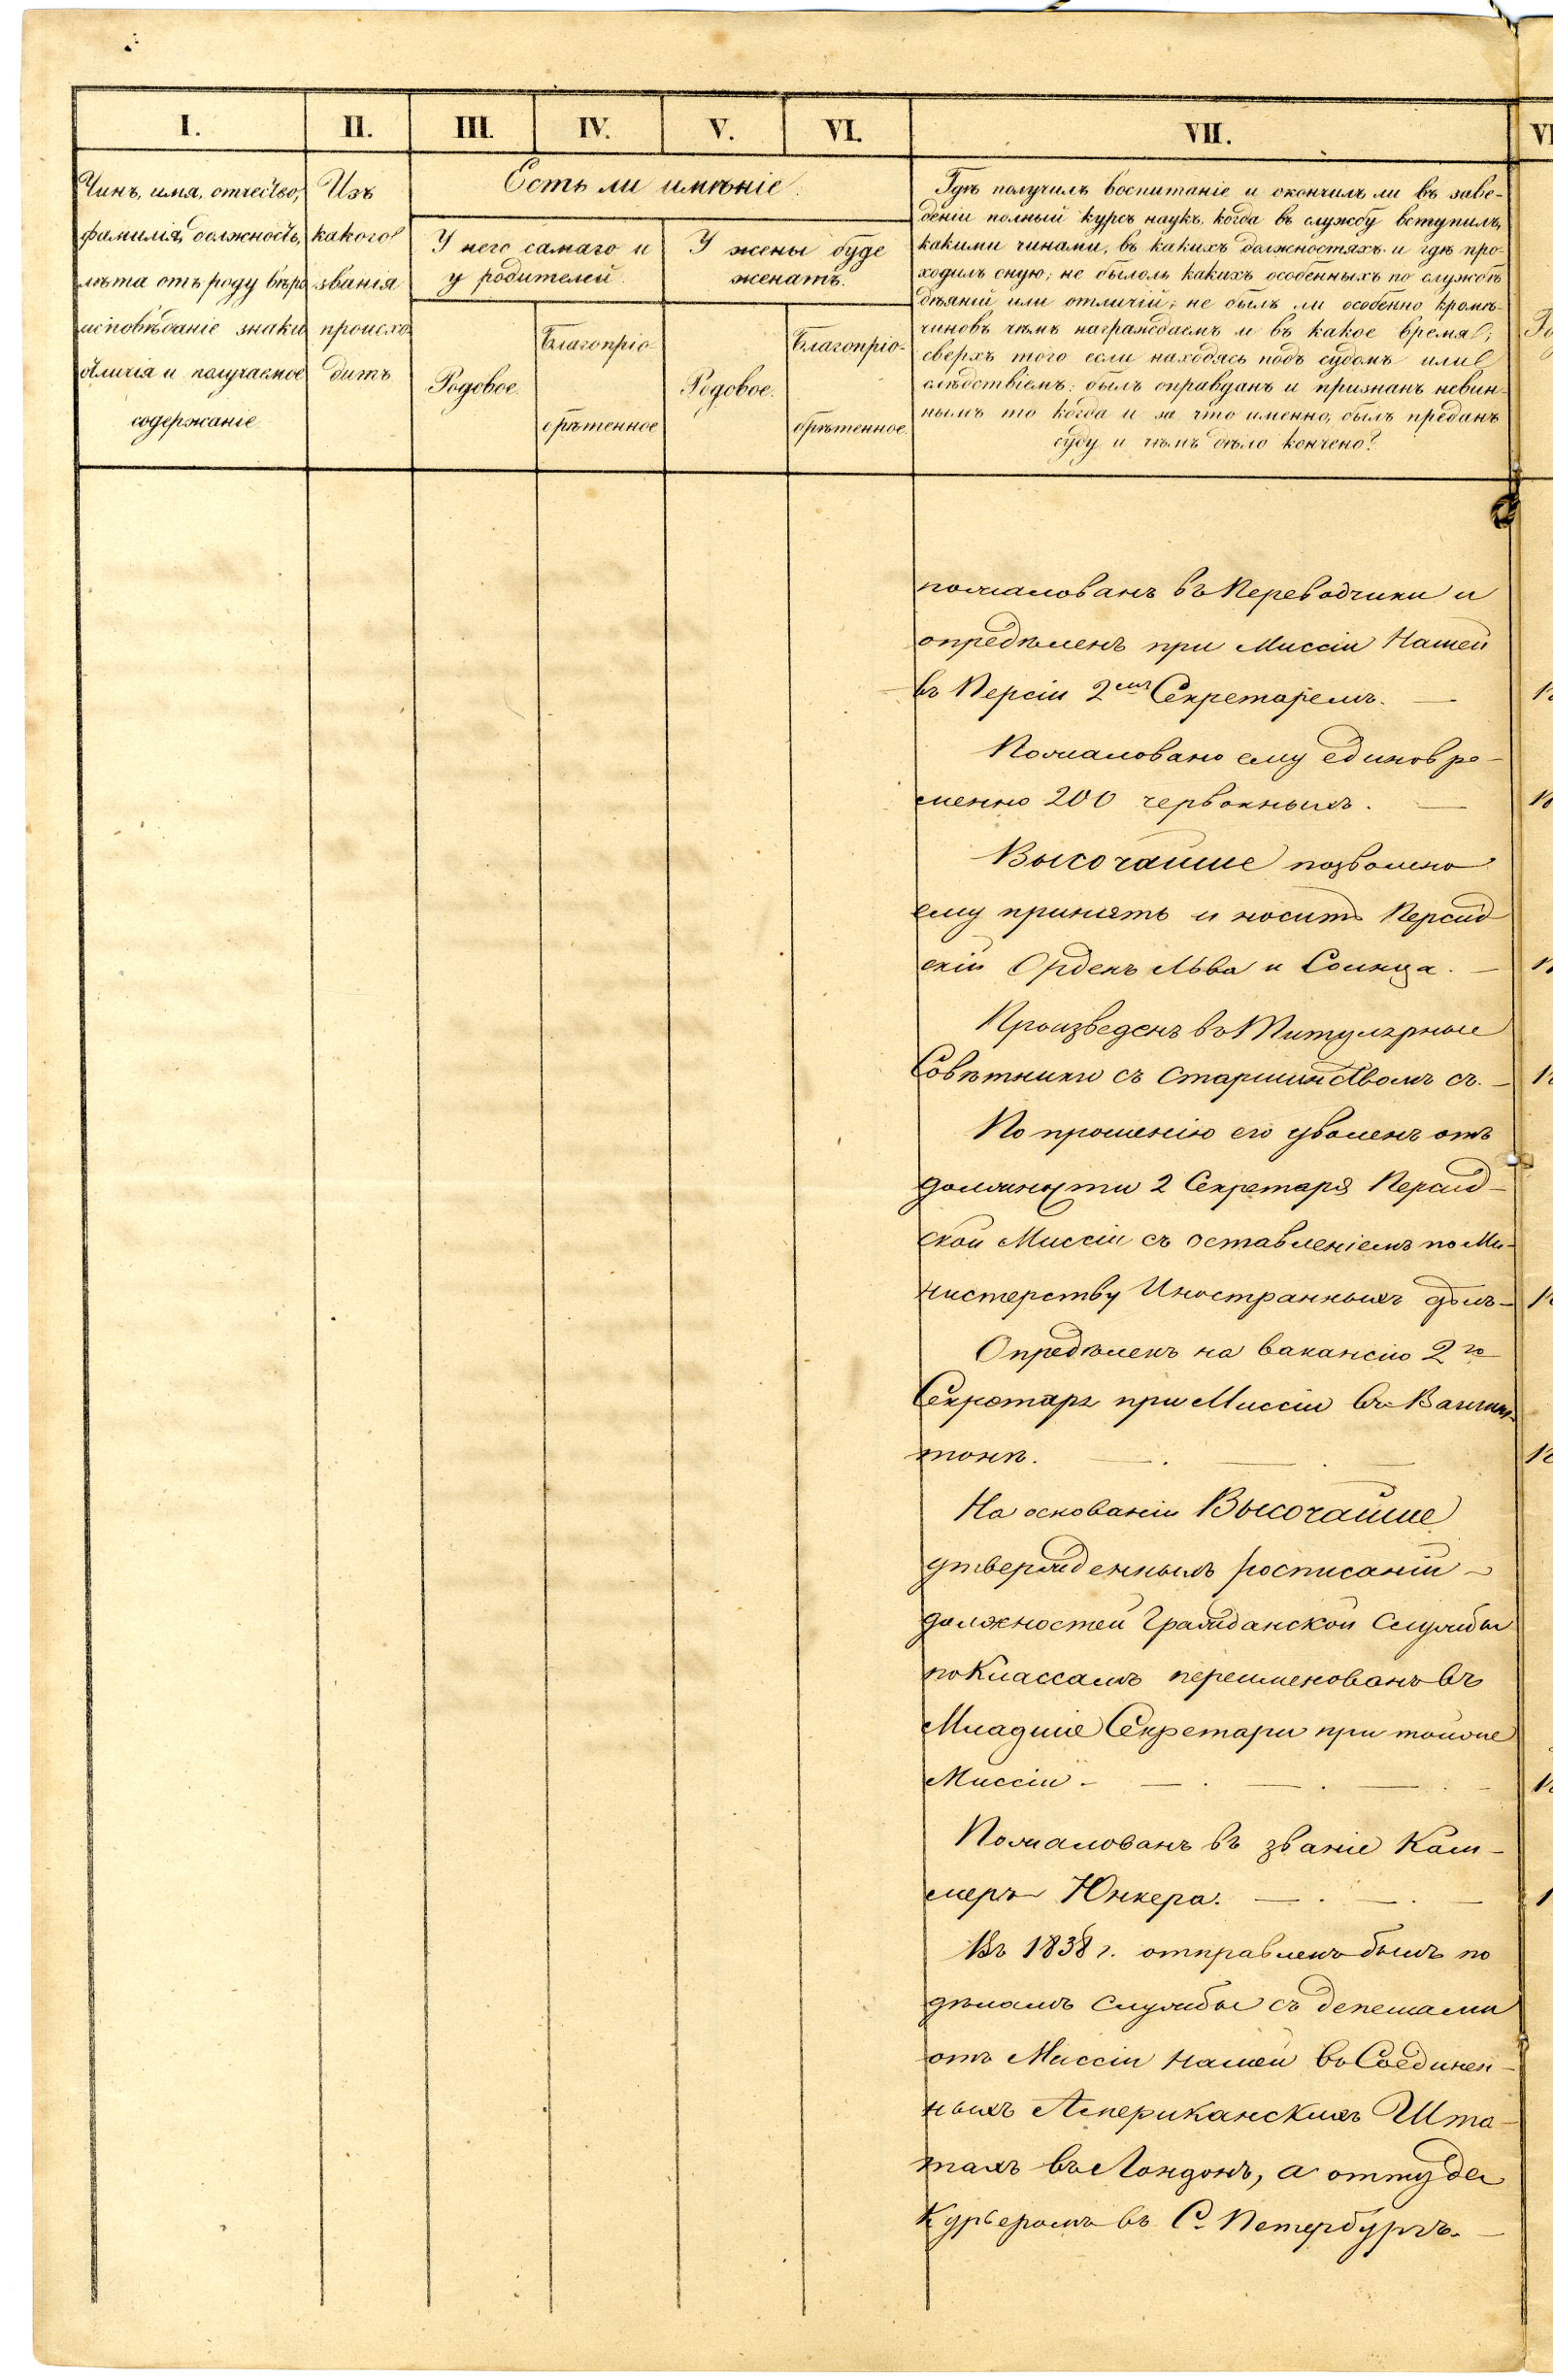 I.
II.
III.
IV.
V.
VI.
VII.
Чинъ, имя, отчество,
фамилія, должность,
лѣта отъ роду вѣро
исповѣданіе знаки
отличія и получаемое
содержаніе
Изъ
какого
званія
происхо
дитъ
Есть ли имѣніе.
У него самаго и
у родителей.
У жены буде
женатъ.
Родовое.
Благопріо-
брѣтенное
Родовое.
Благопріо-
брѣтенное.
Гдѣ получилъ воспитаніе и окончилъ ли въ заве-
деніи полный курсъ наукъ, когда въ службу вступилъ,
какими чинами, въ какихъ должностяхъ и гдѣ про-
ходилъ оную; не былолъ какихъ особенныхъ по службѣ
дѣяній или отличій; не былъ ли особенно кромѣ-
чиновъ чѣмъ награждаемъ и въ какое время;
сверхъ того если находясь подъ судомъ или
слѣдствіемъ: былъ оправданъ и признанъ невин-
нымъ то когда и за что именно, былъ преданъ
суду и чѣмъ дѣло кончено?
пожалованъ въ Переводчики и
опредѣленъ при Миссіи Нашей
въ Персіи 2мъ Секретаремъ. —
Пожаловано ему единовре-
менно 200 червонныхъ. —
Высочайше позволено
ему принять и носить Персид
скій Орденъ Льва и Солнца. —
Произведенъ въ Титулярные
Совѣтники съ старшинствомъ съ. —
По прошенію его уволенъ отъ
должности 2 Секретаря Персид-
ской Миссіи съ оставленіемъ по Ми-
нистерству Иностранныхъ дѣлъ-
Опредѣленъ на вакансію 2го
Секретаря при Миссіи въ Вашинг-
тонѣ.
На основаніи Высочайше
утвержденнымъ росписаніи -
должностей Гражданской Службы
по Классамъ переименованъ въ
Младшіе Секретари при тойже
Миссіи -
Пожалованъ въ званіе Кам-
меръ Юнкера.
Въ 1838 г. отправленъ былъ по
дѣламъ Службы съ депешами
отъ Миссіи нашей въ Соединен-
ныхъ Американскихъ Шта-
тахъ въ Лондонъ, а оттуда
Курьеромъ въ С. Петербургъ. —